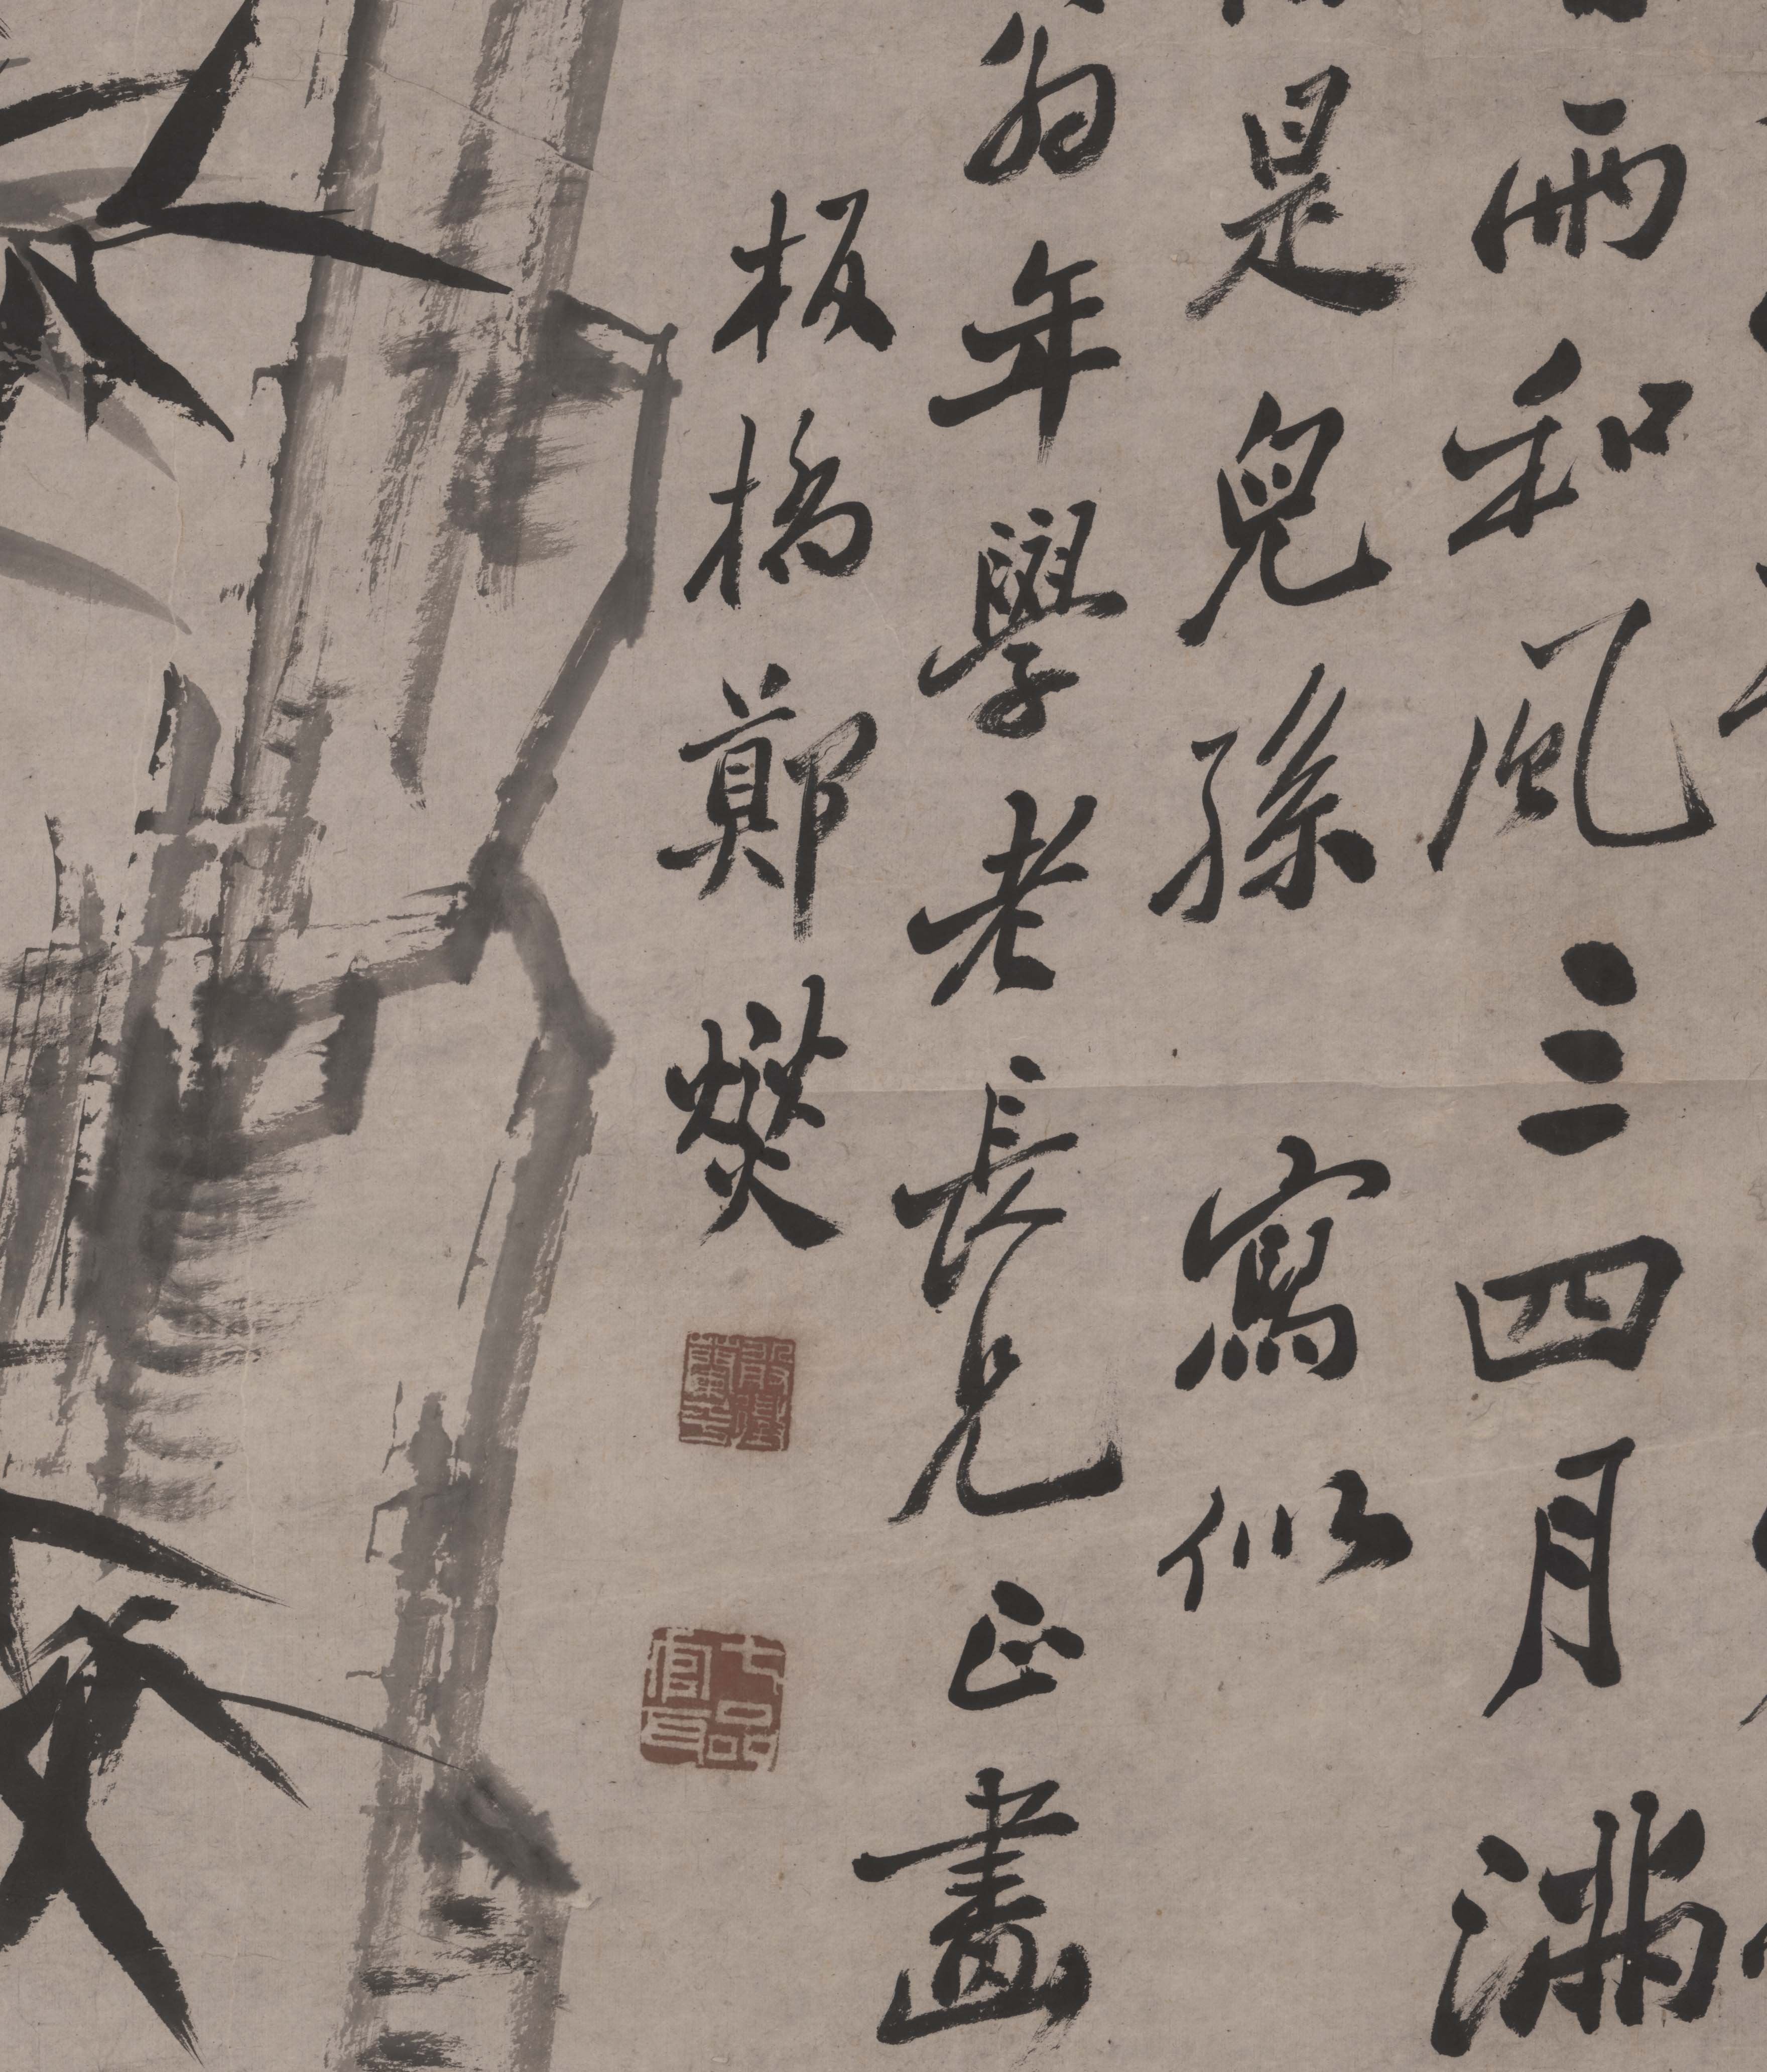 雨和風三四月滿
是兒孫 寫似
翁年學老長兄正畫
板橋鄭燮
七品官耳